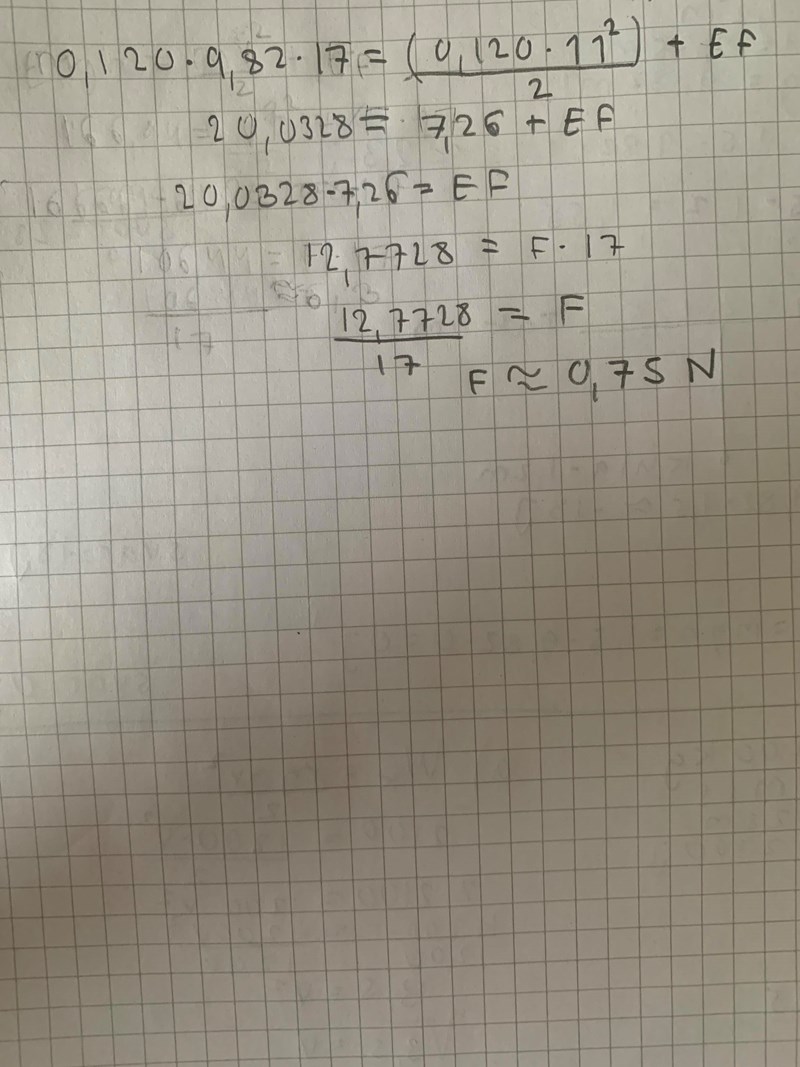 0,120 · 9,82 · 17 = (0,120 · 11²)/2 + EF
20,0328 = 7,26 + EF
20,0328 - 7,26 = EF
12,7728 = F · 17
12,7728/17 = F
F ≈ 0,75 N